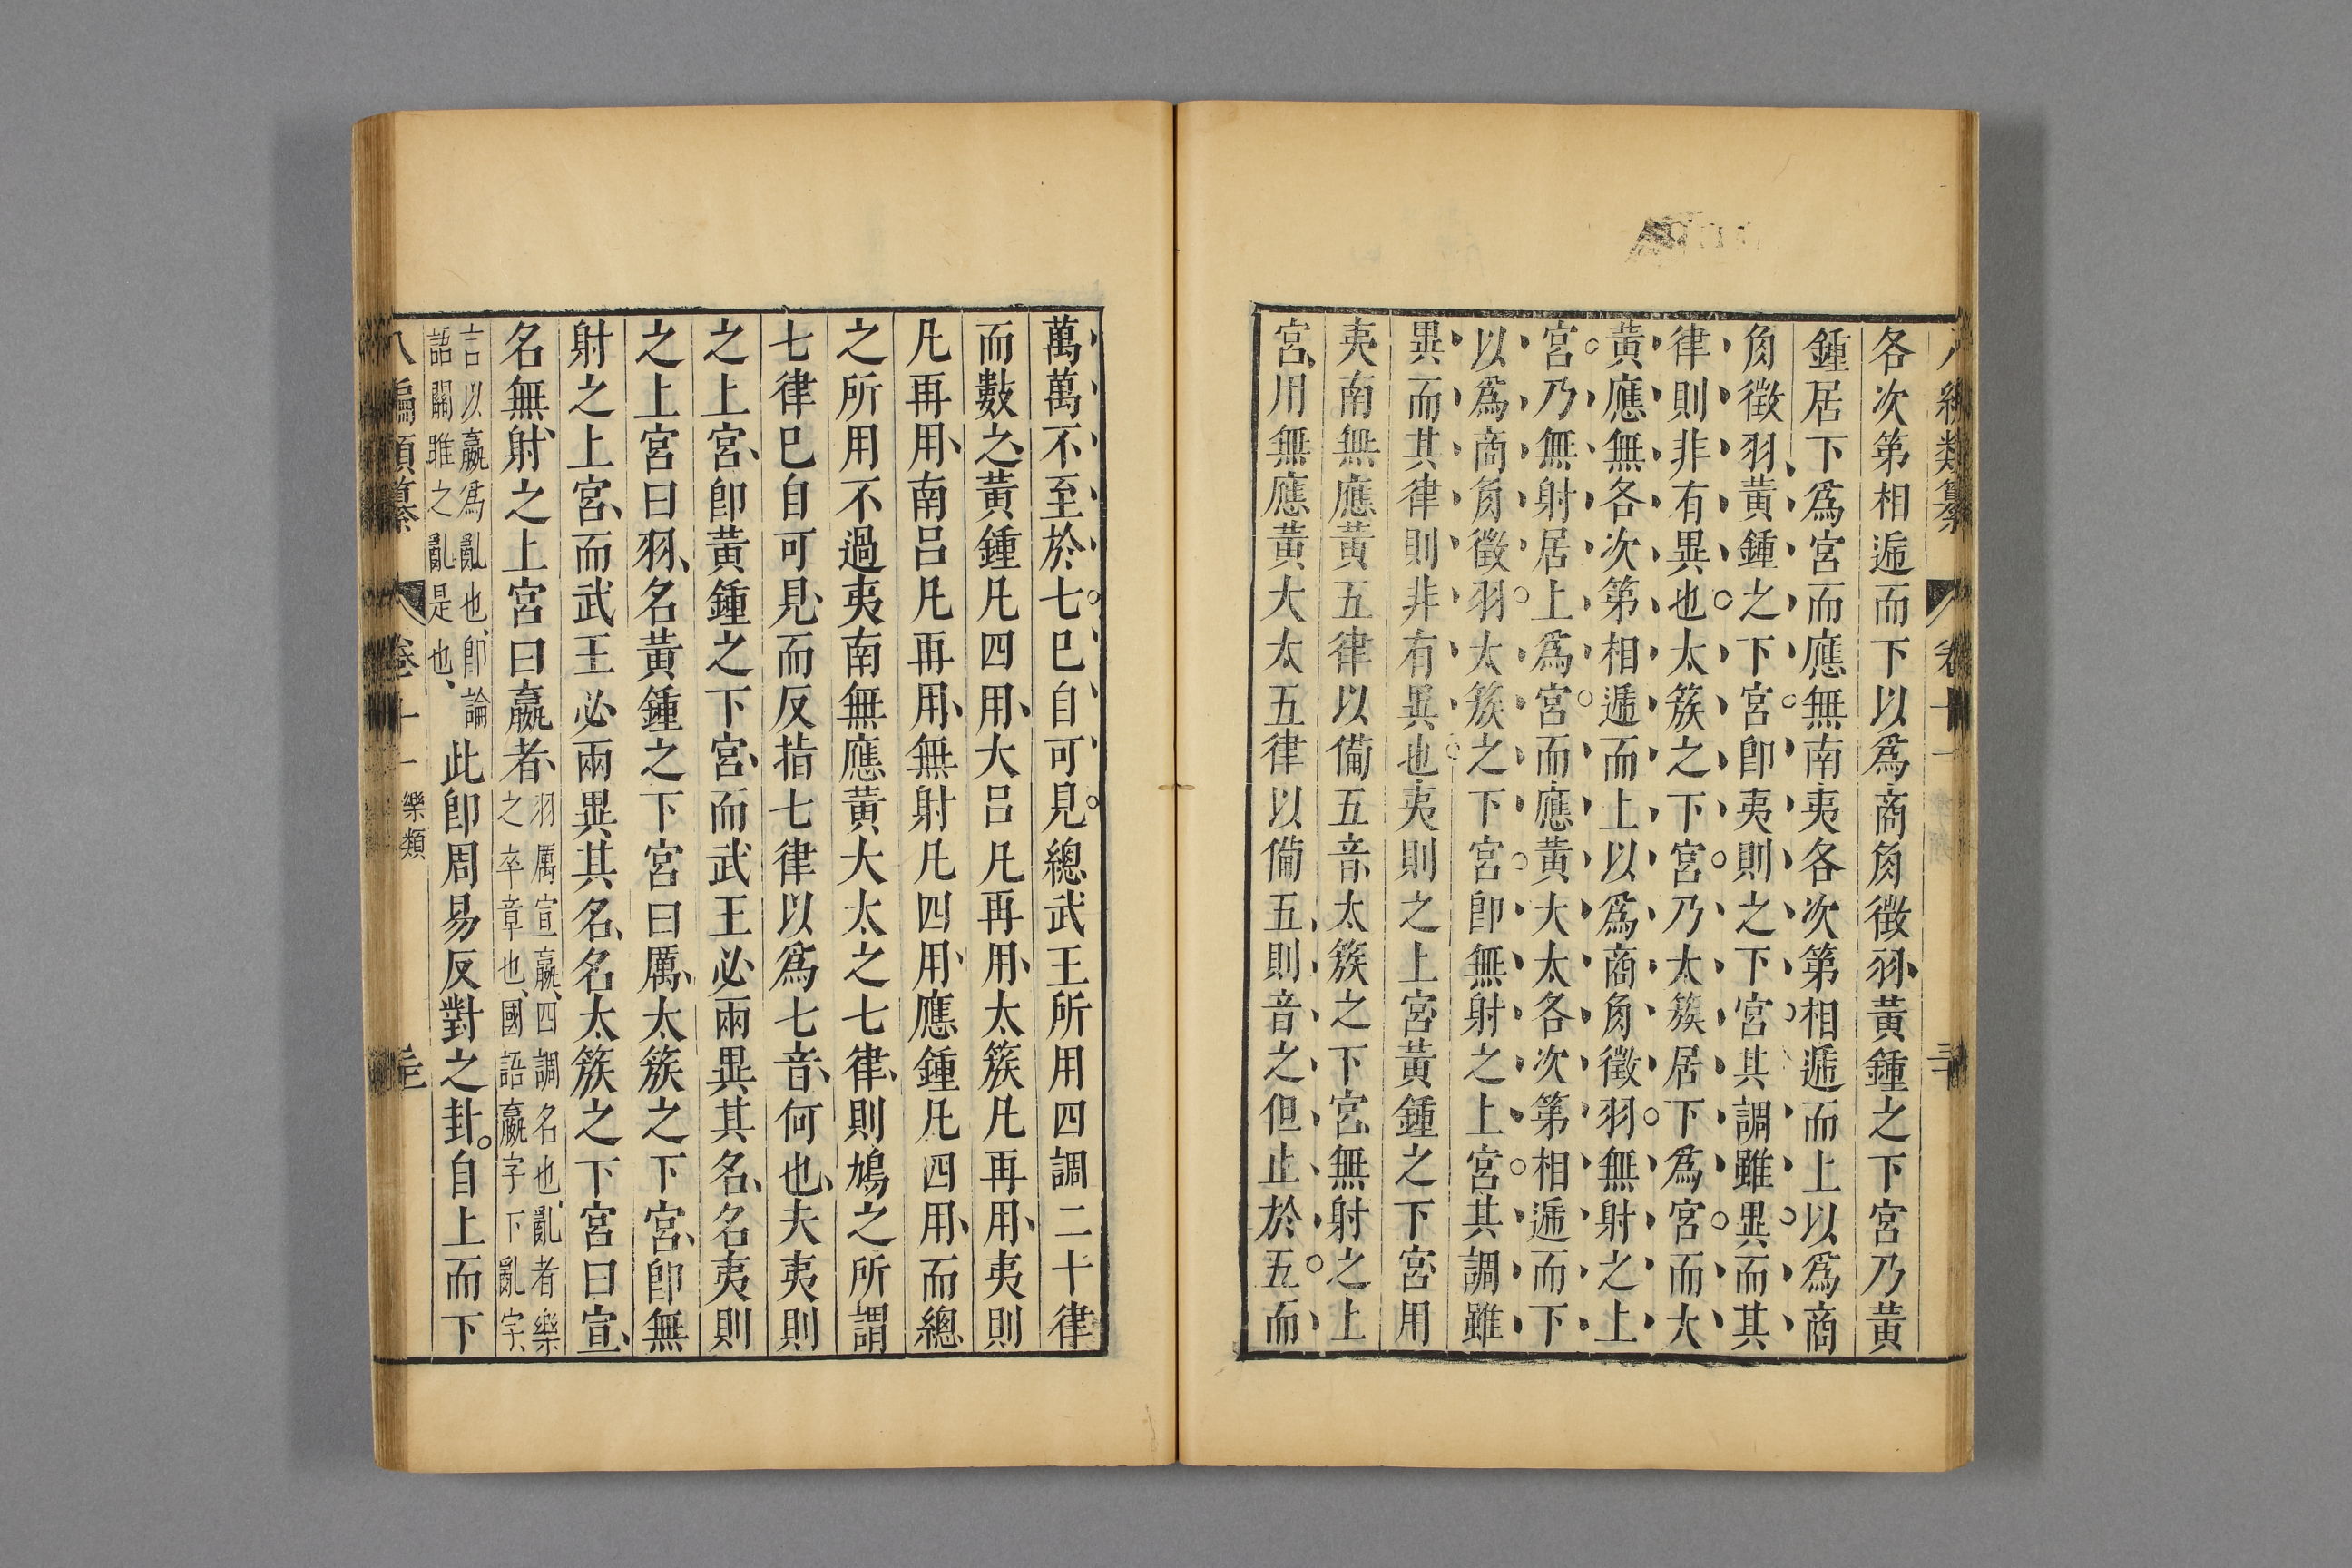 各次第相遞而下以爲商角徵羽黃鍾之下宮乃黃
鍾居下爲宮而應無南夷各次第相遞而上以爲商
角徵羽黃鍾之下宮卽夷則之下宮其調雖異而其
律則非有異也太簇之下宮乃太簇居下爲宮而大
黃應無各次第相遞而上以爲商角徵羽無射之上
宮乃無射居上爲宮而應黃大太各次第相遞而下
以爲商角徵羽太簇之下宮卽無射之上宮其調雖
異而其律則非有異也夷則之上宮黃鍾之下宮用
夷南無應黃五律以備五音太簇之下宮無射之上
宮用無應黃大太五律以備五則音之但止於五而
萬萬不至於七已自可見總武王所用四調二十律
而數之黃鍾凡四用大呂凡再用太簇凡再用夷則
凡再用南呂凡再用無射凡四用應鍾凡四用而總
之所用不過夷南無應黃大太之七律則鳩之所謂
七律已自可見而反指七律以爲七音何也夫夷則
之上宮卽黃鍾之下宮而武王必兩異其名名夷則
之上宮曰羽名黃鍾之下宮曰厲太簇之下宮卽無
射之上宮而武王必兩異其名名太簇之下宮曰宣
名無射之上宮曰嬴者羽厲宣嬴四調名也亂者樂
之卒章也國語嬴字下亂字
言以嬴爲亂也卽論
語關雎之亂是也此卽周易反對之卦自上而下
八編類纂 卷十一 樂類